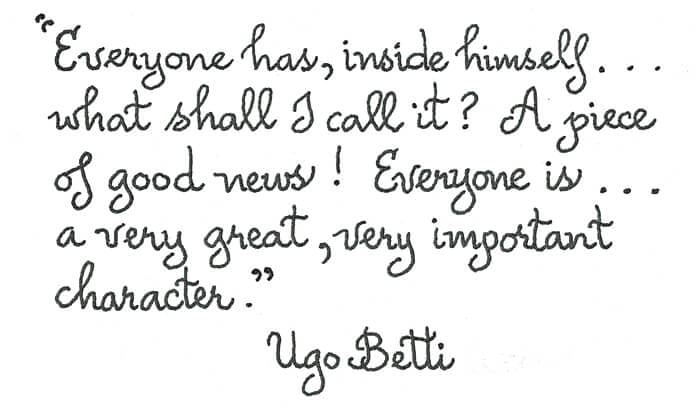 “Everyone has, inside himself...
what shall I call it? A piece
of good news! Everyone is...
a very great, very important
character.”
Ugo Betti